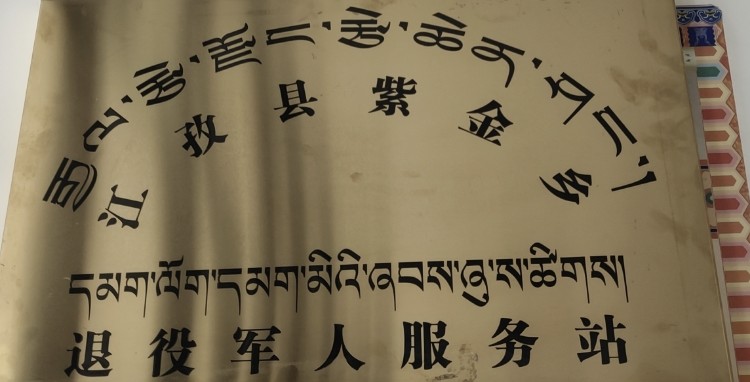 རྒྱལ་རྩེ་རྫོང་རྩེ་ཆེན་ཤང་།
江孜县紫金乡
དམག་ལོག་དམག་མིའི་ཞབས་ཞུ་ས་ཚིགས།
退役军人服务站